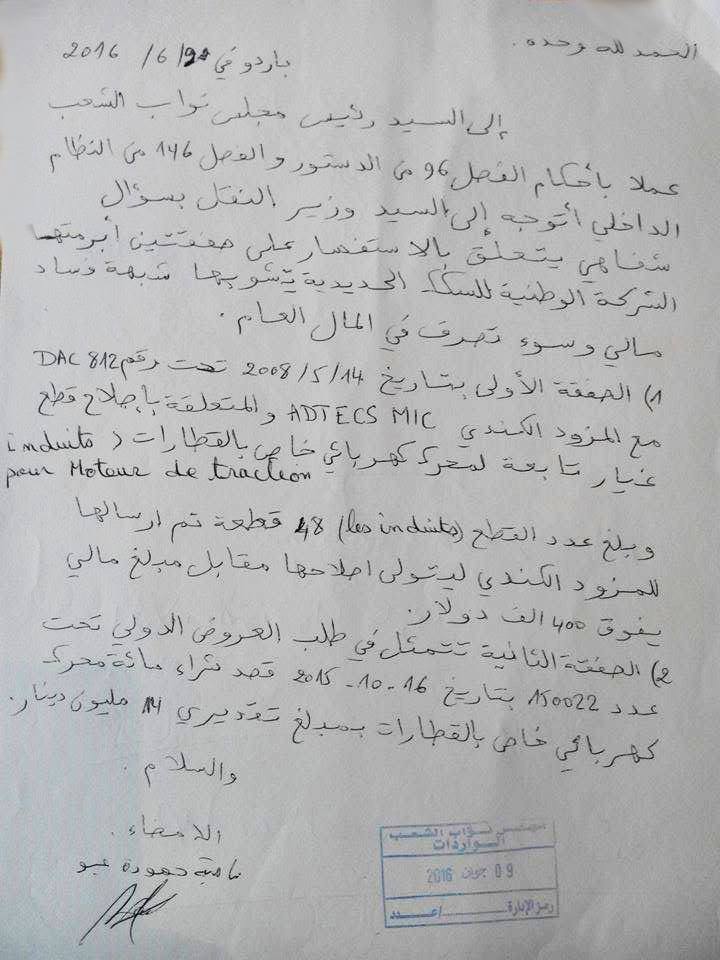 الحمد لله وحده.
باردو في 9/ 6/ 2016
إلى السيد رئيس مجلس نواب الشعب
عملا بأحكام الفصل 96 من الدستور والفصل 146 من النظام
الداخلي أتوجه إلى السيد وزير النقل بسؤال
شفاهي يتعلق بالاستفسار على صفقتين أبرمتها
الشركة الوطنية للسكك الحديدية يشوبها شبهة فساد
مالي وسوء تصرف في المال العام.
1) الصفقة الأولى بتاريخ 2008/5/14 تحت رقم DAC 812
مع المزود الكندي ADTECS MIC والمتعلقة بإصلاح قطع
غيار تابعة لمحرك كهربائي خاص بالقطارات (induits
pour Moteur de traction
وبلغ عدد القطع (les induits) 48 قطعة تم ارسالها
للمزود الكندي ليتولى اصلاحها مقابل مبلغ مالي
يفوق 400 الف دولار.
2) الصفقة الثانية تتمثل في طلب العروض الدولي تحت
عدد 150022 بتاريخ 16-10-2015 قصد شراء مائة محرك
كهربائي خاص بالقطارات بمبلغ تقديري 14 مليون دينار.
والسلام.
الامضاء.
سامية حمودة عبو
مجلس نواب الشعب
الواردات
09 جوان 2016
رمز الإدارة ....../عدد